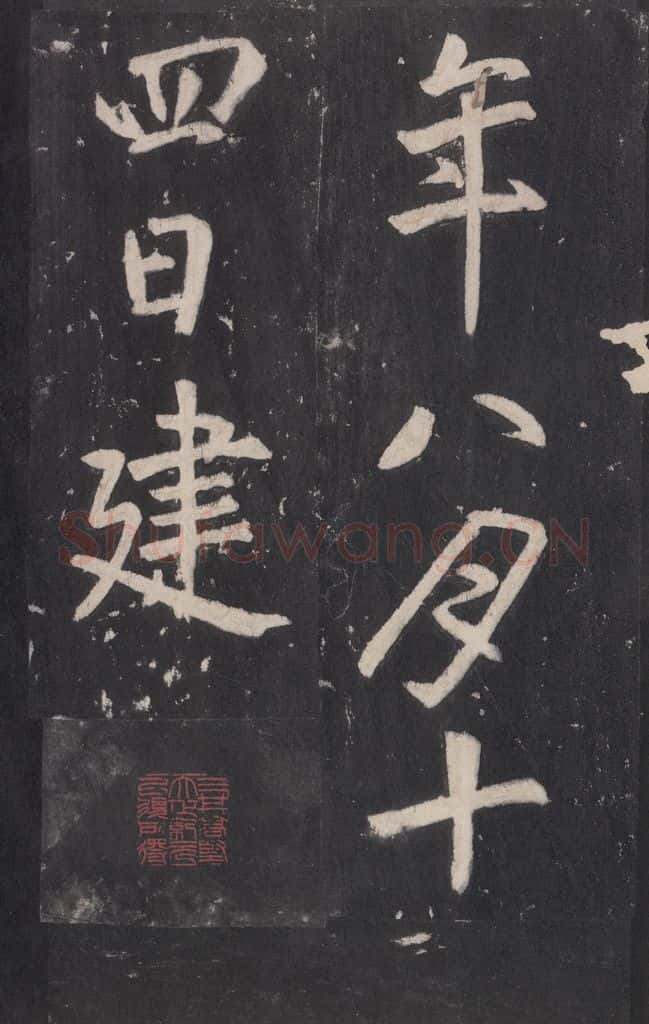 年八月十
四日建
Shufawang.CN